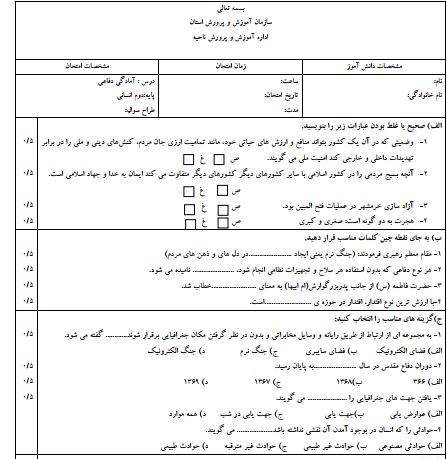 بسمه تعالی
سازمان آموزش و پرورش استان
اداره آموزش و پرورش ناحیه
مشخصات دانش آموز زمان امتحان مشخصات امتحان
نام: ساعت: درس : آمادگی دفاعی
نام خانوادگی: تاریخ امتحان: پایه:دوم انسانی
مدت: طراح سوال:
الف) صحیح یا غلط بودن عبارات زیر را بنویسید.
۱- وضعیتی که در آن یک کشور بتواند منافع و ارزش های حیاتی خود، مانند تمامیت ارزی جان مردم، کنش‌های دینی و ملی را در برابر ۰/۵
تهدیدات داخلی و خارجی کند امنیت ملی می گویند. ص غ
۲- آنچه بسیج مردمی را در کشور اسلامی با سایر کشورهای دیگر کشورهای دیگر متفاوت می کند ایمان به خدا و جهاد اسلامی است. ۰/۵
ص غ
۳- آزاد سازی خرمشهر در عملیات فتح المبین بود. ص غ ۰/۵
۲- هجرت به دو گونه است: صغری و کبری ص غ ۰/۵
ب) به جای نقطه چین کلمات مناسب قرار دهید.
۱- مقام معظم رهبری فرمودند: (جنگ نرم یعنی ایجاد ......................در دل های و ذهن های مردم) ۰/۵
۲- هر نوع دفاعی که بدون استفاده هر سلاح و تجهیزات نظامی انجام شود، ................... نامیده می شود. ۰/۵
۳- حضرت فاطمه (س) از جانب پدربزرگوارش(ام ابیها) به معنای ......................خطاب شد. ۰/۵
۴-با ارزش ترین نوع اقتدار، اقتدار در حوزه ی .......................است. ۰/۵
ج)گزینه های مناسب را انتخاب کنید:
۱- به مجموعه ای از ارتباط از طریق رایانه و وسایل مخابراتی و بدون در نظر گرفتن مکان جغرافیایی برقرار شوند........... گفته می شود. ۰/۵
الف) فضای الکترونیک ب) فضای سایبری ج) جنگ نرم د) جنگ الکترونیک
۲- دوران دفاع مقدس در سال .....................به پایان رسید. ۰/۵
الف) ۳۶۶ ب)۱۳۶۸ ج) ۱۳۶۷ د) ۱۳۶۹ ۰/۵
۳- یافتن جهت های جغرافیایی را ................... می گویند. ۰/۵
الف) عوارض یابی ب)جهت یابی ج) جهت یابی در شب د) همه موارد
۴-حوادثی را که انسان در بوجود آمدن آن نقشی نداشته باشد.................. می گویند ۰/۵
الف) حوادثی مصنوعی ب) حوادث غیر طبیعی ج) حوادث غیر مترقبه د) حوادث طبیعی